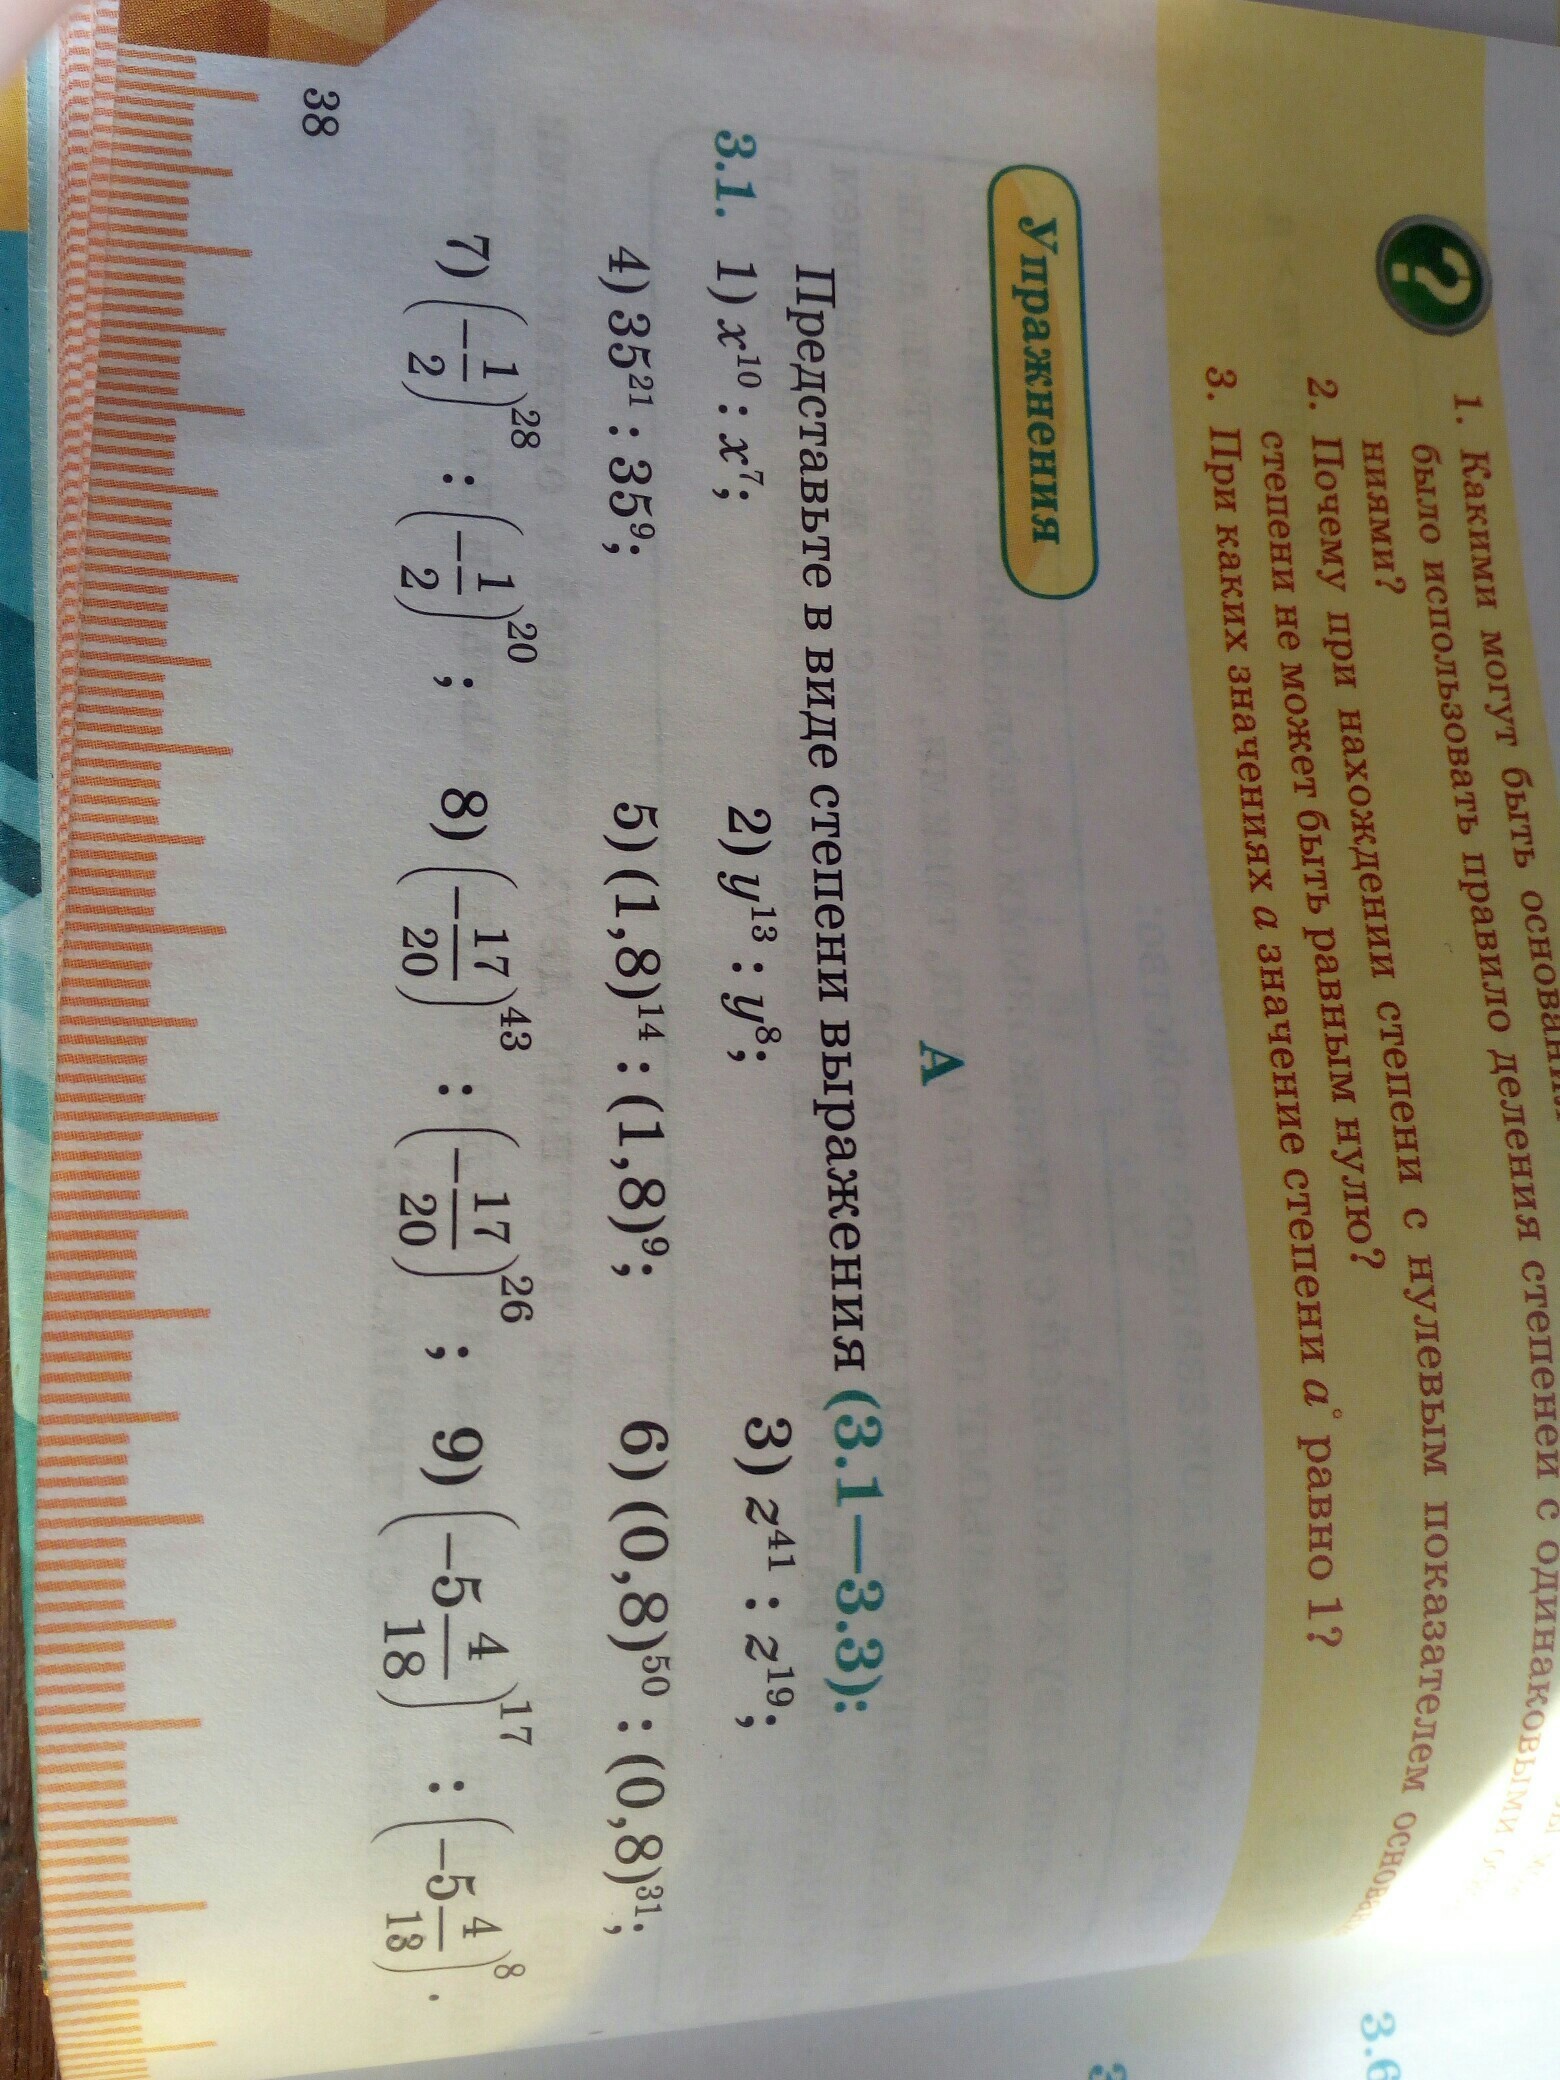 1. Какими могут быть
было использовать правило деления степеней с одинаковыми
ниями?
2. Почему при нахождении степени с нулевым показателем
степени не может быть равным нулю?
3. При каких значениях a значение степени a° равно 1?
Упражнения
А
Представьте в виде степени выражения (3.1—3.3):
3.1. 1) x¹⁰ : x⁷; 2) y¹³ : y⁸; 3) z⁴¹ : z¹⁹;
4) 35²¹ : 35⁹; 5) (1,8)¹⁴ : (1,8)⁹; 6) (0,8)⁵⁰ : (0,8)³¹;
7) (−1/2)²⁸ : (−1/2)²⁰; 8) (−17/20)⁴³ : (−17/20)²⁶; 9) (−5 4/18)¹⁷ : (−5 4/18)⁸.
38
3.6